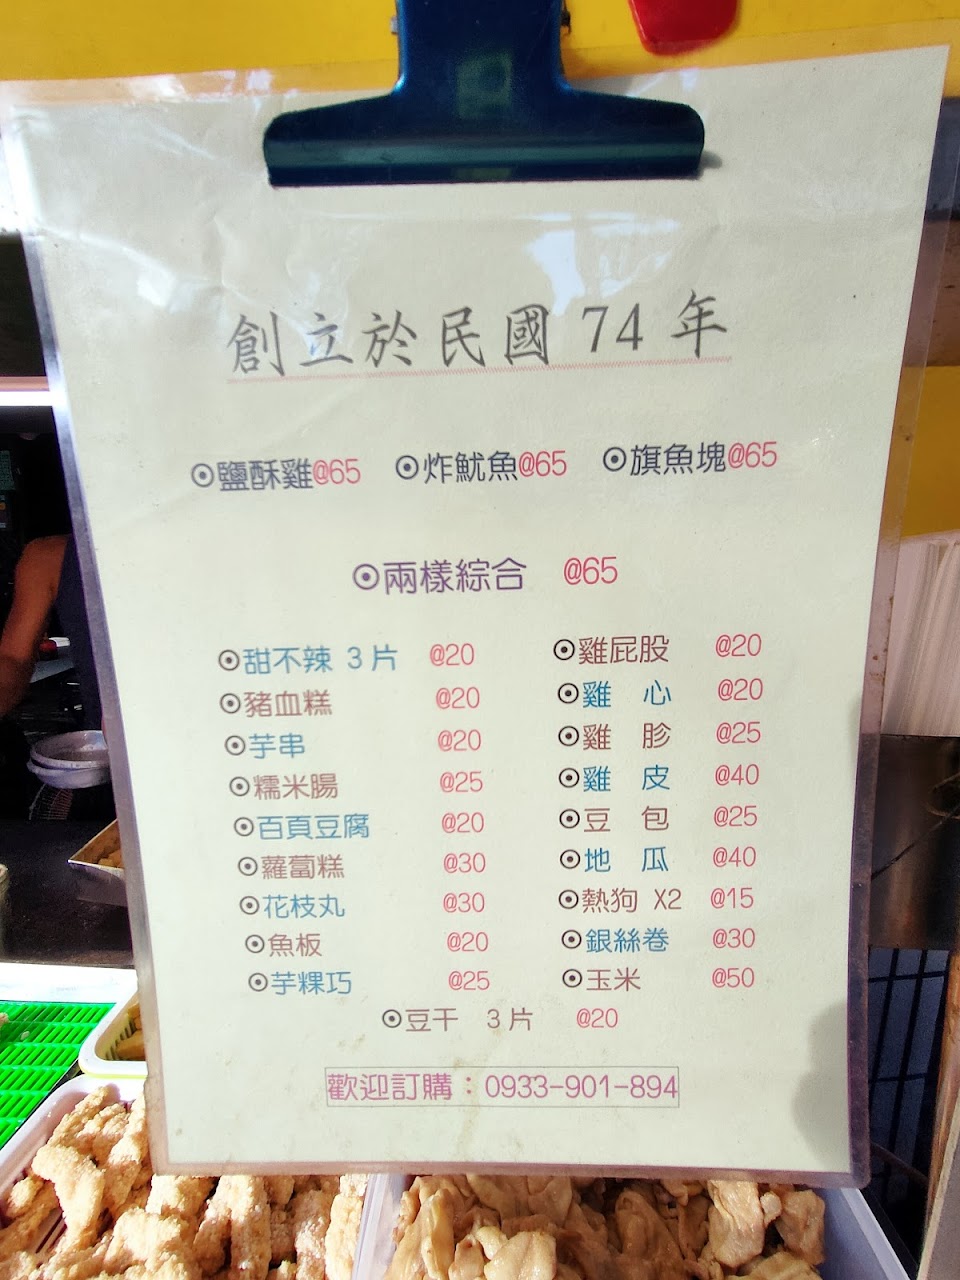 創立於民國 74 年
⊙鹽酥雞@65 ⊙炸魷魚@65 ⊙旗魚塊@65
⊙兩樣綜合 @65
⊙甜不辣 3 片 @20 ⊙雞屁股 @20
⊙豬血糕 @20 ⊙雞 心 @20
⊙芋串 @20 ⊙雞 胗 @25
⊙糯米腸 @25 ⊙雞 皮 @40
⊙百頁豆腐 @20 ⊙豆 包 @25
⊙蘿蔔糕 @30 ⊙地 瓜 @40
⊙花枝丸 @30 ⊙熱狗 X2 @15
⊙魚板 @20 ⊙銀絲卷 @30
⊙芋粿巧 @25 ⊙玉米 @50
⊙豆干 3 片 @20
歡迎訂購：0933-901-894